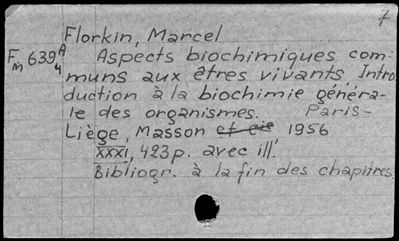 7
Florkin, Marcel
Fm 639 A4 Aspects biochimiques com-
muns aux êtres vivants. Intro
duction à la biochimie généra-
le des organismes. Paris-
Liège, Masson et cie 1956
XXXI, 423 p. avec ill.
Bibliogr. à la fin des chapitres.